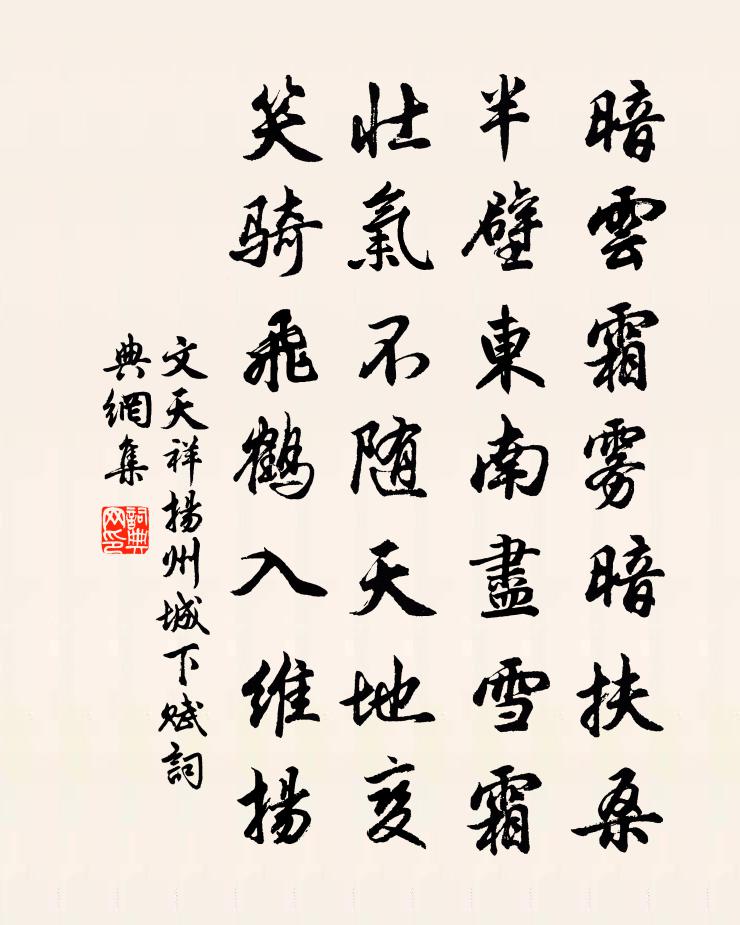 暗雲霜雾暗扶桑
半壁東南盡雪霜
壮氣不随天地变
笑骑飛鶴入维揚
文天祥揚州城下赋詞
典網集
詞典网印